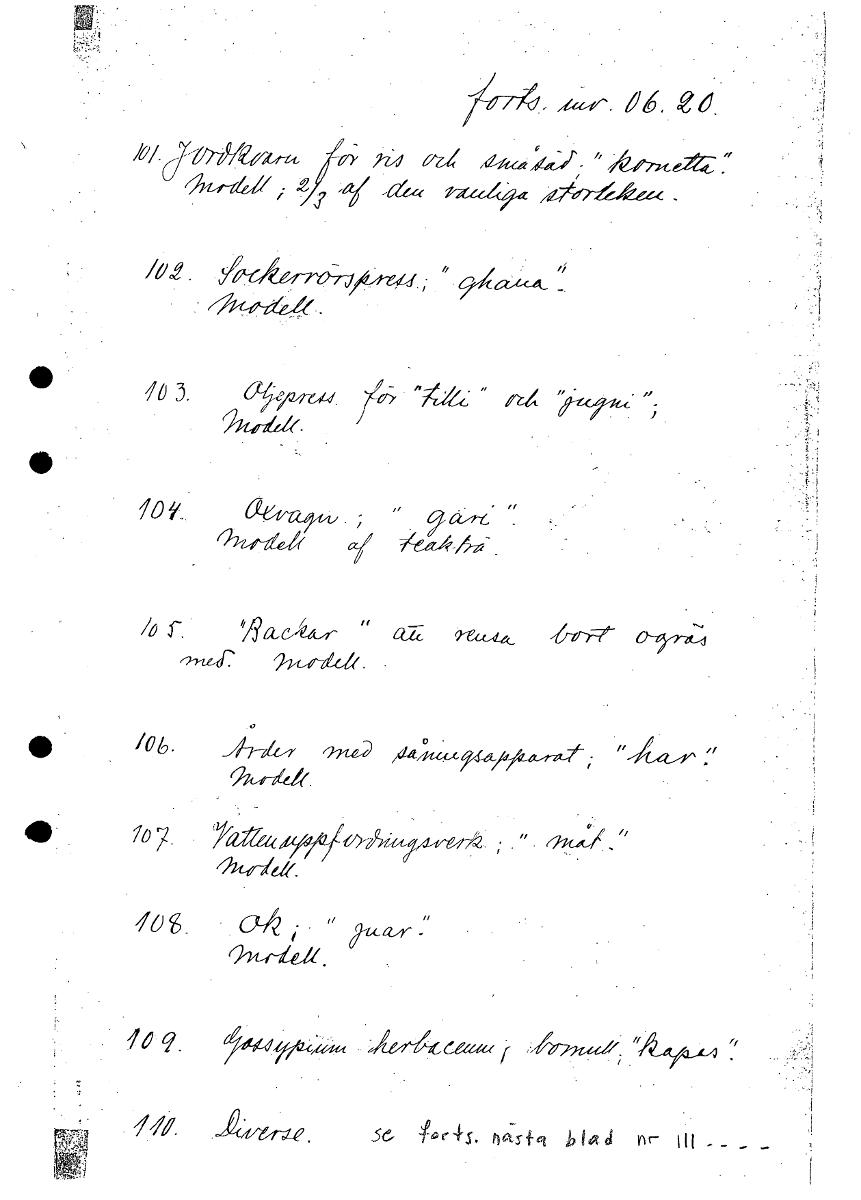 forts. inv. 06.20.
101. Jordkvarn för ris och småsäd; "kometta".
Modell; 2/3 af den vanliga storleken.
102. Sockerrörspress; "ghana".
Modell.
103. Oljepress för "tilli" och "jugni";
Modell.
104. Oxvagn; "gari".
Modell af teakträ.
105. "Backar" att rensa bort ogräs
med. Modell.
106. Årder med såningsapparat; "har".
Modell.
107. Vattenuppfordringsverk; "måt."
Modell.
108. Ok; "juar".
Modell.
109. Gossypium herbaceum; bomull; "kapas".
110. Diverse. se forts. nästa blad nr 111----